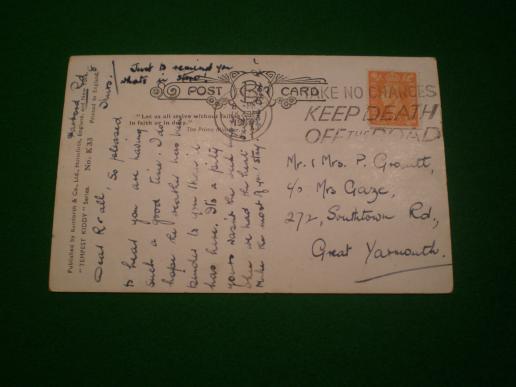 Just to remind you
thats it slow!
POST CARD
"Let us all strive without failing
in faith or in duty."
The Prime Minister
TAKE NO CHANCES
KEEP DEATH
OFF THE ROAD
Mr. & Mrs. P.
c/o Mrs Gaze,
272, Southtown Rd.,
Great Yarmouth.
Published by Bamforth & Co., Ltd., Holmfirth, England, and New York
"TEMPEST KIDDY" Series No. K33
Printed in England
Rd,
Thurs.
Dear R & all, So pleased
to hear you are having
such a good time. I do
hope the weather has been
kinder to you than it
has here. It's a pity
yours wasn't the week
we had the heat
Make the most of your stay